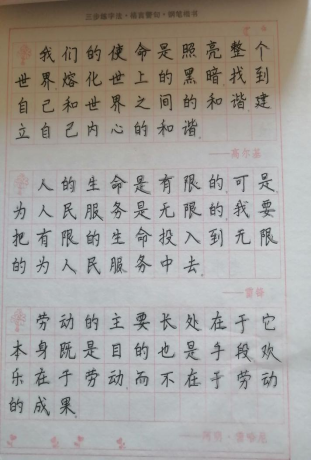 我们的使命是照亮整个
世界熔化世上的黑暗找到
自己和世界之间的和谐建
立自己内心的和谐
——高尔基
人的生命是有限的可是
为人民服务是无限的我要
把有限的生命投入到无限
的为人民服务中去
——雷锋
劳动的主要长处在于它
本身既是目的也是手段欢
乐在于劳动而不在于劳动
的成果